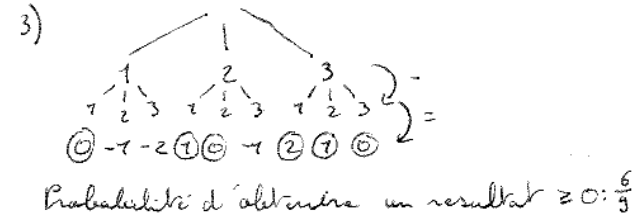 3)
1 2 3
1 2 3 1 2 3 1 2 3 -
0 -1 -2 1 0 -1 2 1 0 =
Probabilité d'obtenir un resultat ≥ 0: 6/9